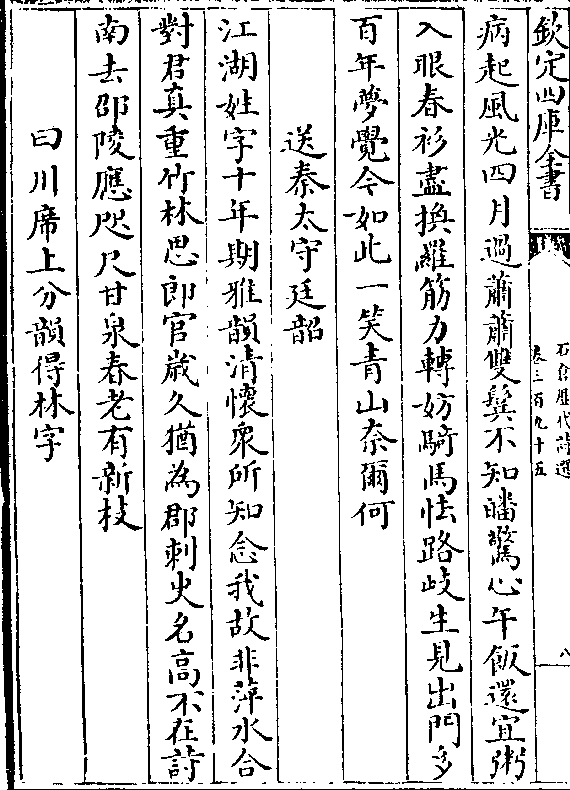 欽定四庫全書
石倉歷代詩選
卷三百九十五
八
病起風光四月過蕭蕭雙鬢不知皤驚心午飯還宜粥
入眼春衫盡換羅筋力轉妨騎馬怯路歧生見出門多
百年夢覺今如此一笑青山奈爾何
送秦太守廷韶
江湖姓字十年期雅韻清懷衆所知念我故非萍水合
對君真重竹林思郎官歳久猶為郡刺史名高不在詩
南去邵陵應咫尺甘泉春老有新枝
曰川席上分韻得林字